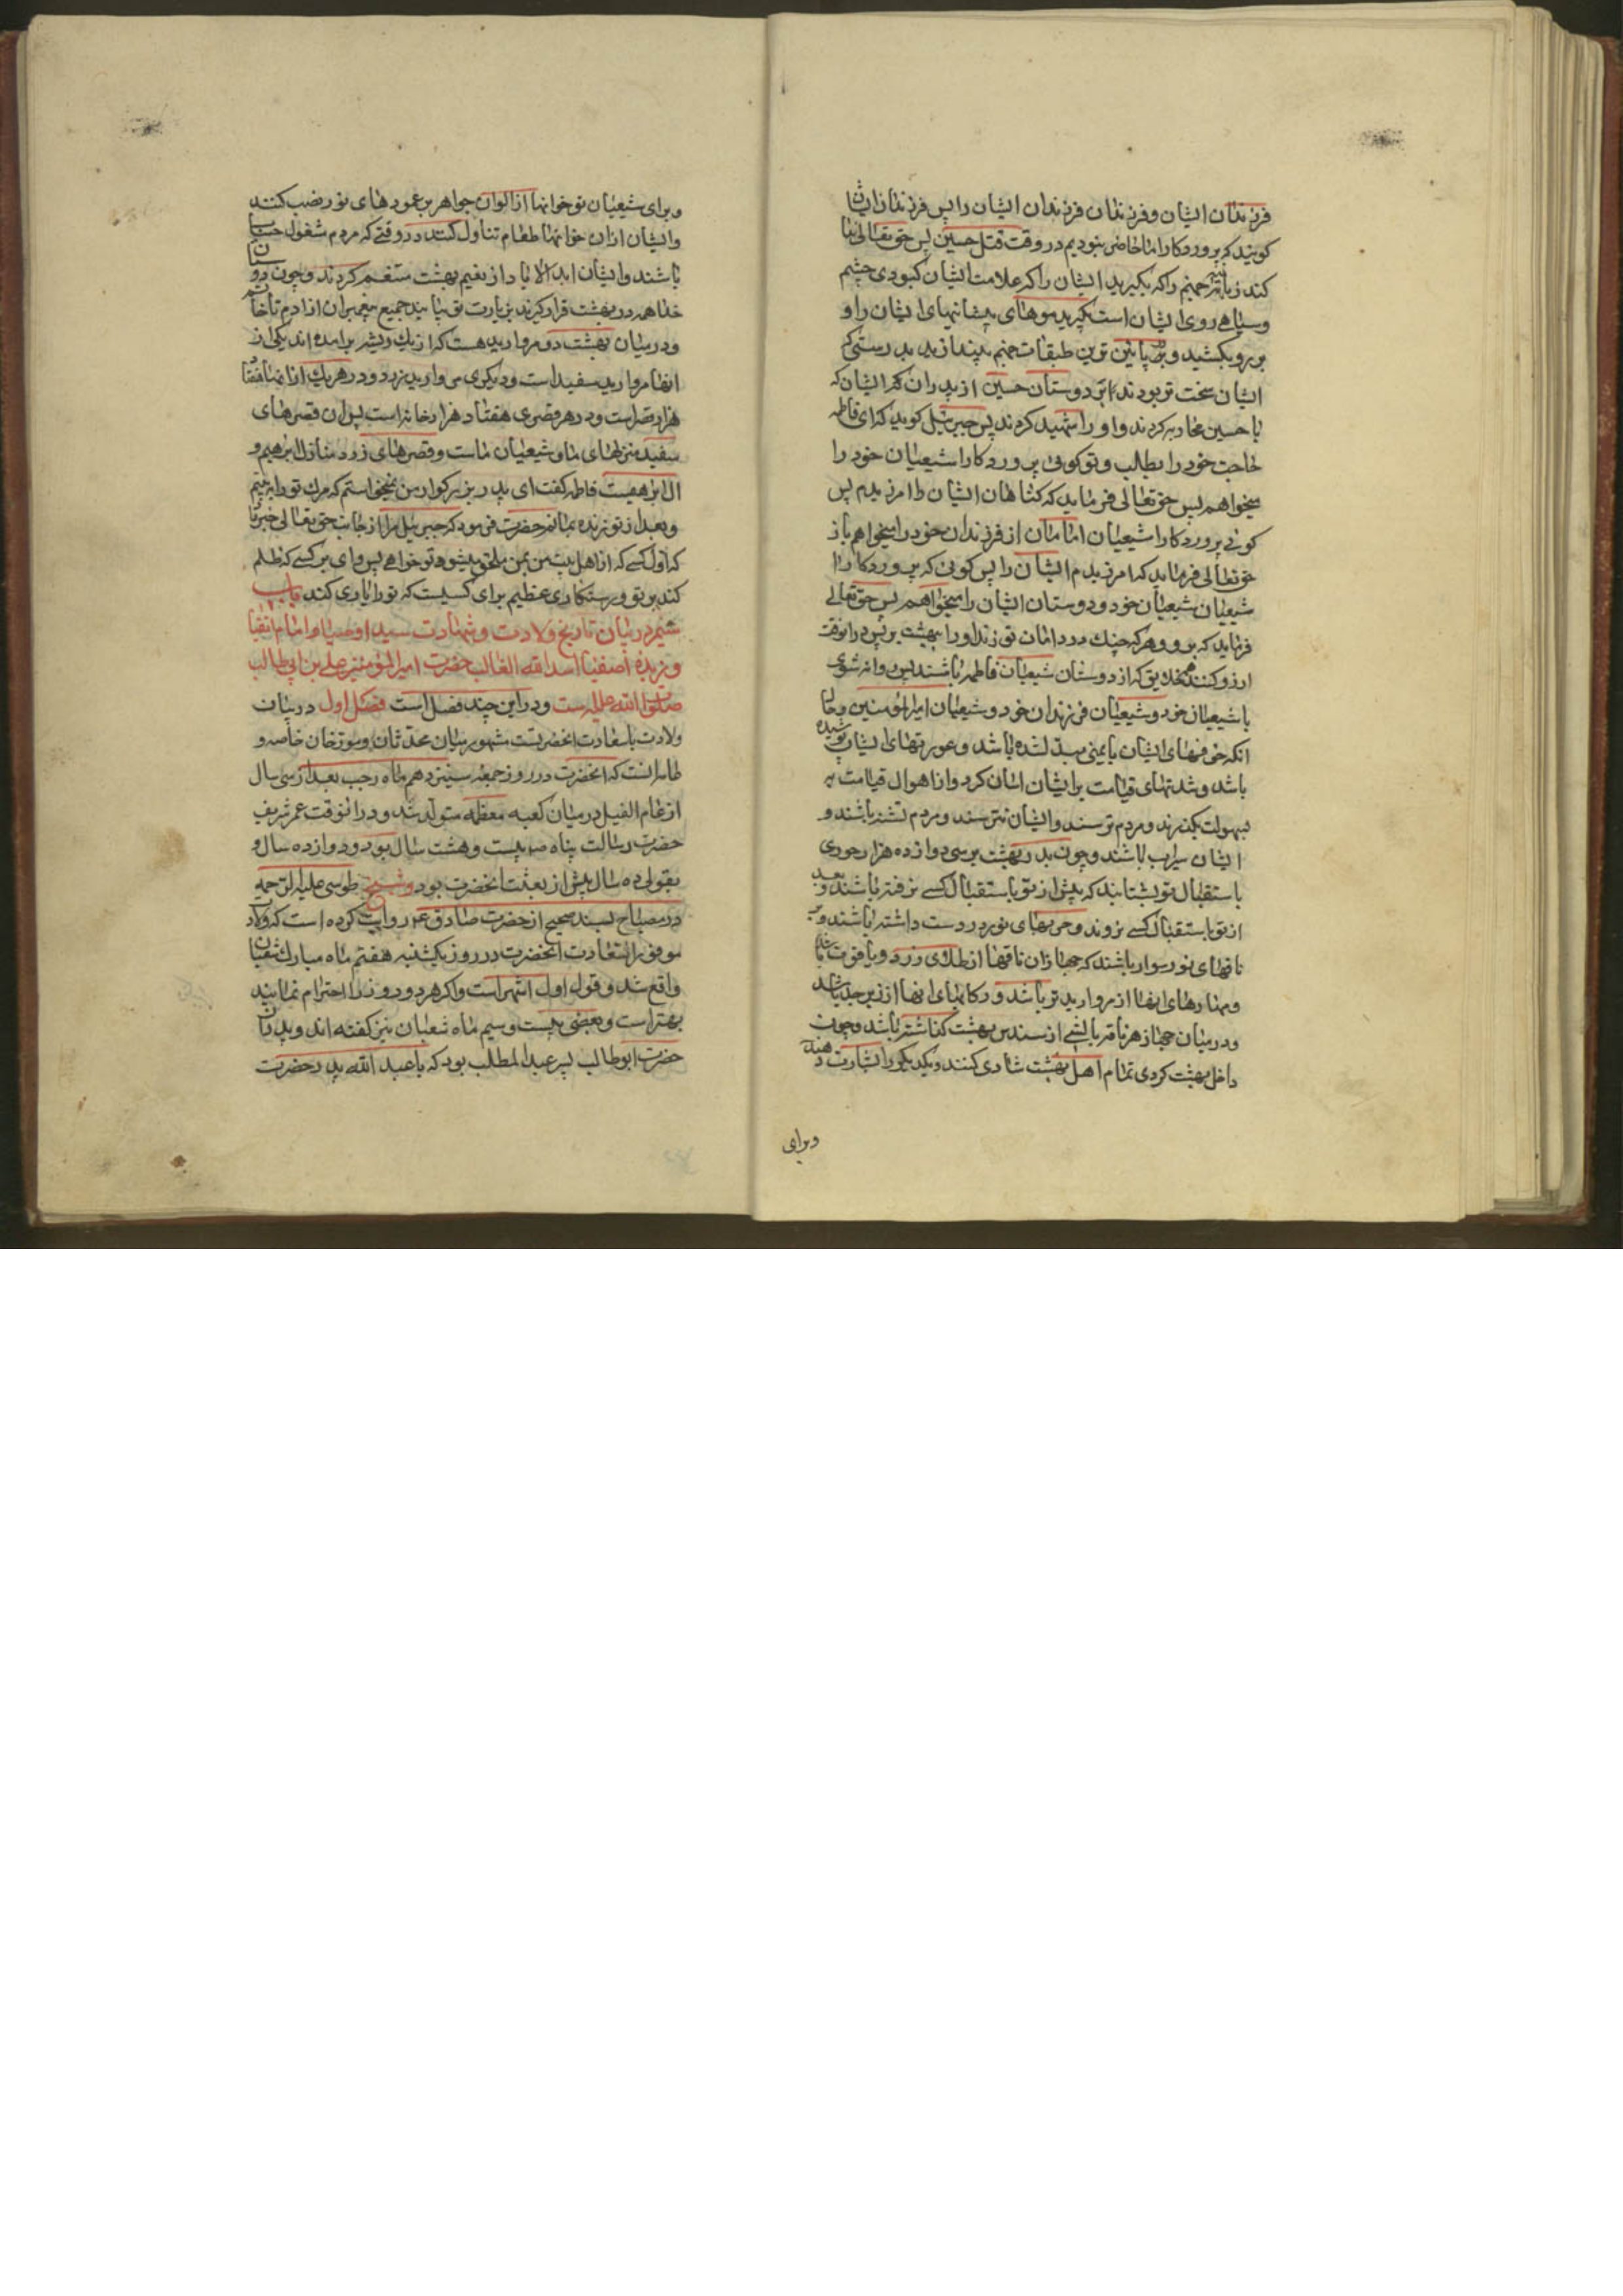 فرزندان ایشان و فرزندان فرزندان ایشان را پس فرزندان ایشان
کویند که پروردکارا ما حاضر نبودیم در وقت قتل حسین پس حق تعالی ندا
کند زبانیه جهنم را که بکیرید ایشان را که علامت ایشان کبودی چشم
و سیاهی روی ایشان است بکیرید موهای پیشانیهای ایشان را و
بر رو بکشید و به پائین ترین طبقات جهنم بیندازید بدرستی که
ایشان سخت تر بودند بر دوستان حسین از پدران که ایشان که
با حسین محاربه کردند و او را شهید کردند پس جبرئیل کوید که ای فاطمه
حاجت خود را بطلب و تو کوئی پروردکارا شیعیان خود را
میخواهم پس حق تعالی فرماید که کناهان ایشان را امرزیدم پس
کوئی پروردکارا شیعیان امامان از فرزندان خود را میخواهم باز
حق تعالی فرماید که امرزیدم ایشان را پس کوئی که پروردکارا
شیعیان شیعیان خود و دوستان ایشان را میخواهم پس حق تعالی
فرماید که برو و هر که چنک در دامان تو زند او را ببهشت بر پس در انوقت
ارزو کنند همه خلایق که از دوستان شیعیان فاطمه باشند پس روانه شوی
با شیعیان خود و شیعیان فرزندان خود و شیعیان امیرالمؤمنین و حال
انکه خوفهای ایشان بایمنی مبدل شده باشد و عورتهای ایشان پوشیده
باشد و شدتهای قیامت بر ایشان اسان کردد و از اهوال قیامت به
سهولت بکذرند و مردم ترسند و ایشان نترسند و مردم تشنه باشند و
ایشان سیراب باشند و چون بدر بهشت برسی دوازده هزار حوری
باستقبال تو بشتابند که پیش از تو باستقبال کسی نرفته باشند و بعد
از تو باستقبال کسی نروند و حربهای نور در دست داشته باشند و بر
ناقهای نور سوار باشند که جهازان ناقها از طلای زرد و یاقوت باشد
و مهارهای انها از مروارید تر باشد و رکابهای انها از زبرجد باشد
و در میان جهاز هر ناقه بالشی از سندس بهشت کذاشته باشد و چون
داخل بهشت کردی تمام اهل بهشت شادی کنند و یکدیکر را بشارت دهند
و برای
و برای شیعیان تو خوانها از الوان جواهر بر عمودهای نور نصب کنند
و ایشان ازان خوانها طعام تناول کنند در وقتی که مردم مشغول حساب
باشند و ایشان ابدالاباد از نعیم بهشت متنعم کردند و چون دوستان
خدا همه در بهشت قرار کیرند بزیارت تو بیایند جمیع پیغمبران از ادم تا خاتم
و در میان بهشت دو مروارید هست که از یک ریشه برامده اند یکی از
انها مروارید سفید است و دیکری مروارید زرد و در هر یک از انها هفتاد
هزار قصر است و در هر قصری هفتاد هزار خانه است پس ان قصرهای
سفید منزلهای ما و شیعیان ماست و قصرهای زرد منازل ابرهیم و
ال ابرهیمست فاطمه کفت ای پدر بزرکوار من نمیخواستم که مرک تو را به بینم
و بعد از تو زنده بمانم حضرت فرمود که جبرئیل مرا از جانب حق تعالی خبر داد
که اول کسی که از اهل بیت من بمن ملحق میشود تو خواهی پس وای بر کسی که ظلم
کند بر تو و رستکاری عظیم برای کسیست که تو را یاری کند باب
ششم در بیان تاریخ ولادت و شهادت سید اوصیا و امام اتقیا
و زبده اصفیا اسد الله الغالب حضرت امیر المؤمنین علی بن ابی طالب
صلوات الله علیه است و در این چند فصل است فصل اول در بیان
ولادت باسعادت انحضرتست مشهور میان محدثان و مورخان خاصه و
عامه انست که انحضرت در روز جمعه سیزدهم ماه رجب بعد از سی سال
از عام الفیل در میان کعبه معظمه متولد شد و در انوقت عمر شریف
حضرت رسالت پناه ص بیست و هشت سال بود و دوازده سال و
بقولی ده سال پیش از بعثت انحضرت بود و شیخ طوسی علیه الرحمه
در مصباح بسند صحیح از حضرت صادق ع روایت کرده است که ولادت
موفور السعادت انحضرت در روز یکشنبه هفتم ماه مبارک شعبان
واقع شد و قول اول اشهر است و اکر هر دو روز را احترام نمایند
بهتر است و بعضی بیست و سیم ماه شعبان نیز کفته اند و پدر ان
حضرت ابوطالب پسر عبدالمطلب بود که با عبد الله پدر حضرت